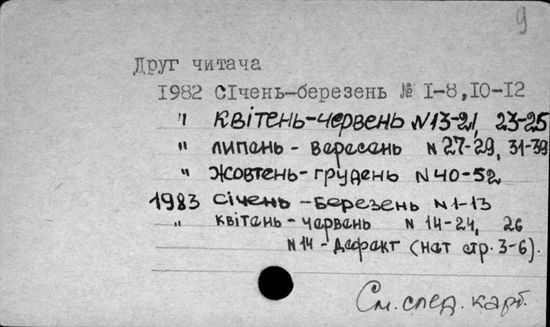 9
Друг читача
1982 СІчень-березень № І-8,І0-І2
" квітень-червень N13-21, 23-25
" липень - вересень N 27-29, 31-39
" жовтень-грудень N 40-52
1983 січень - березень N 1-13
" квітень - червень N 14-24, 26
N14 - дефект (нат стр. 3-6).
См. след. карт.